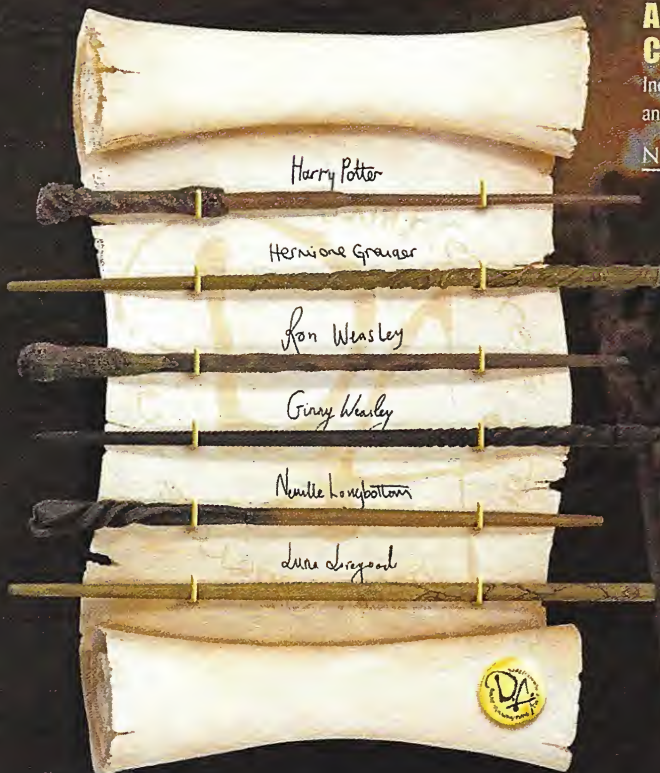 Harry Potter
Hermione Granger
Ron Weasley
Ginny Weasley
Neville Longbottom
Luna Lovegood
DA
A
C
an
N